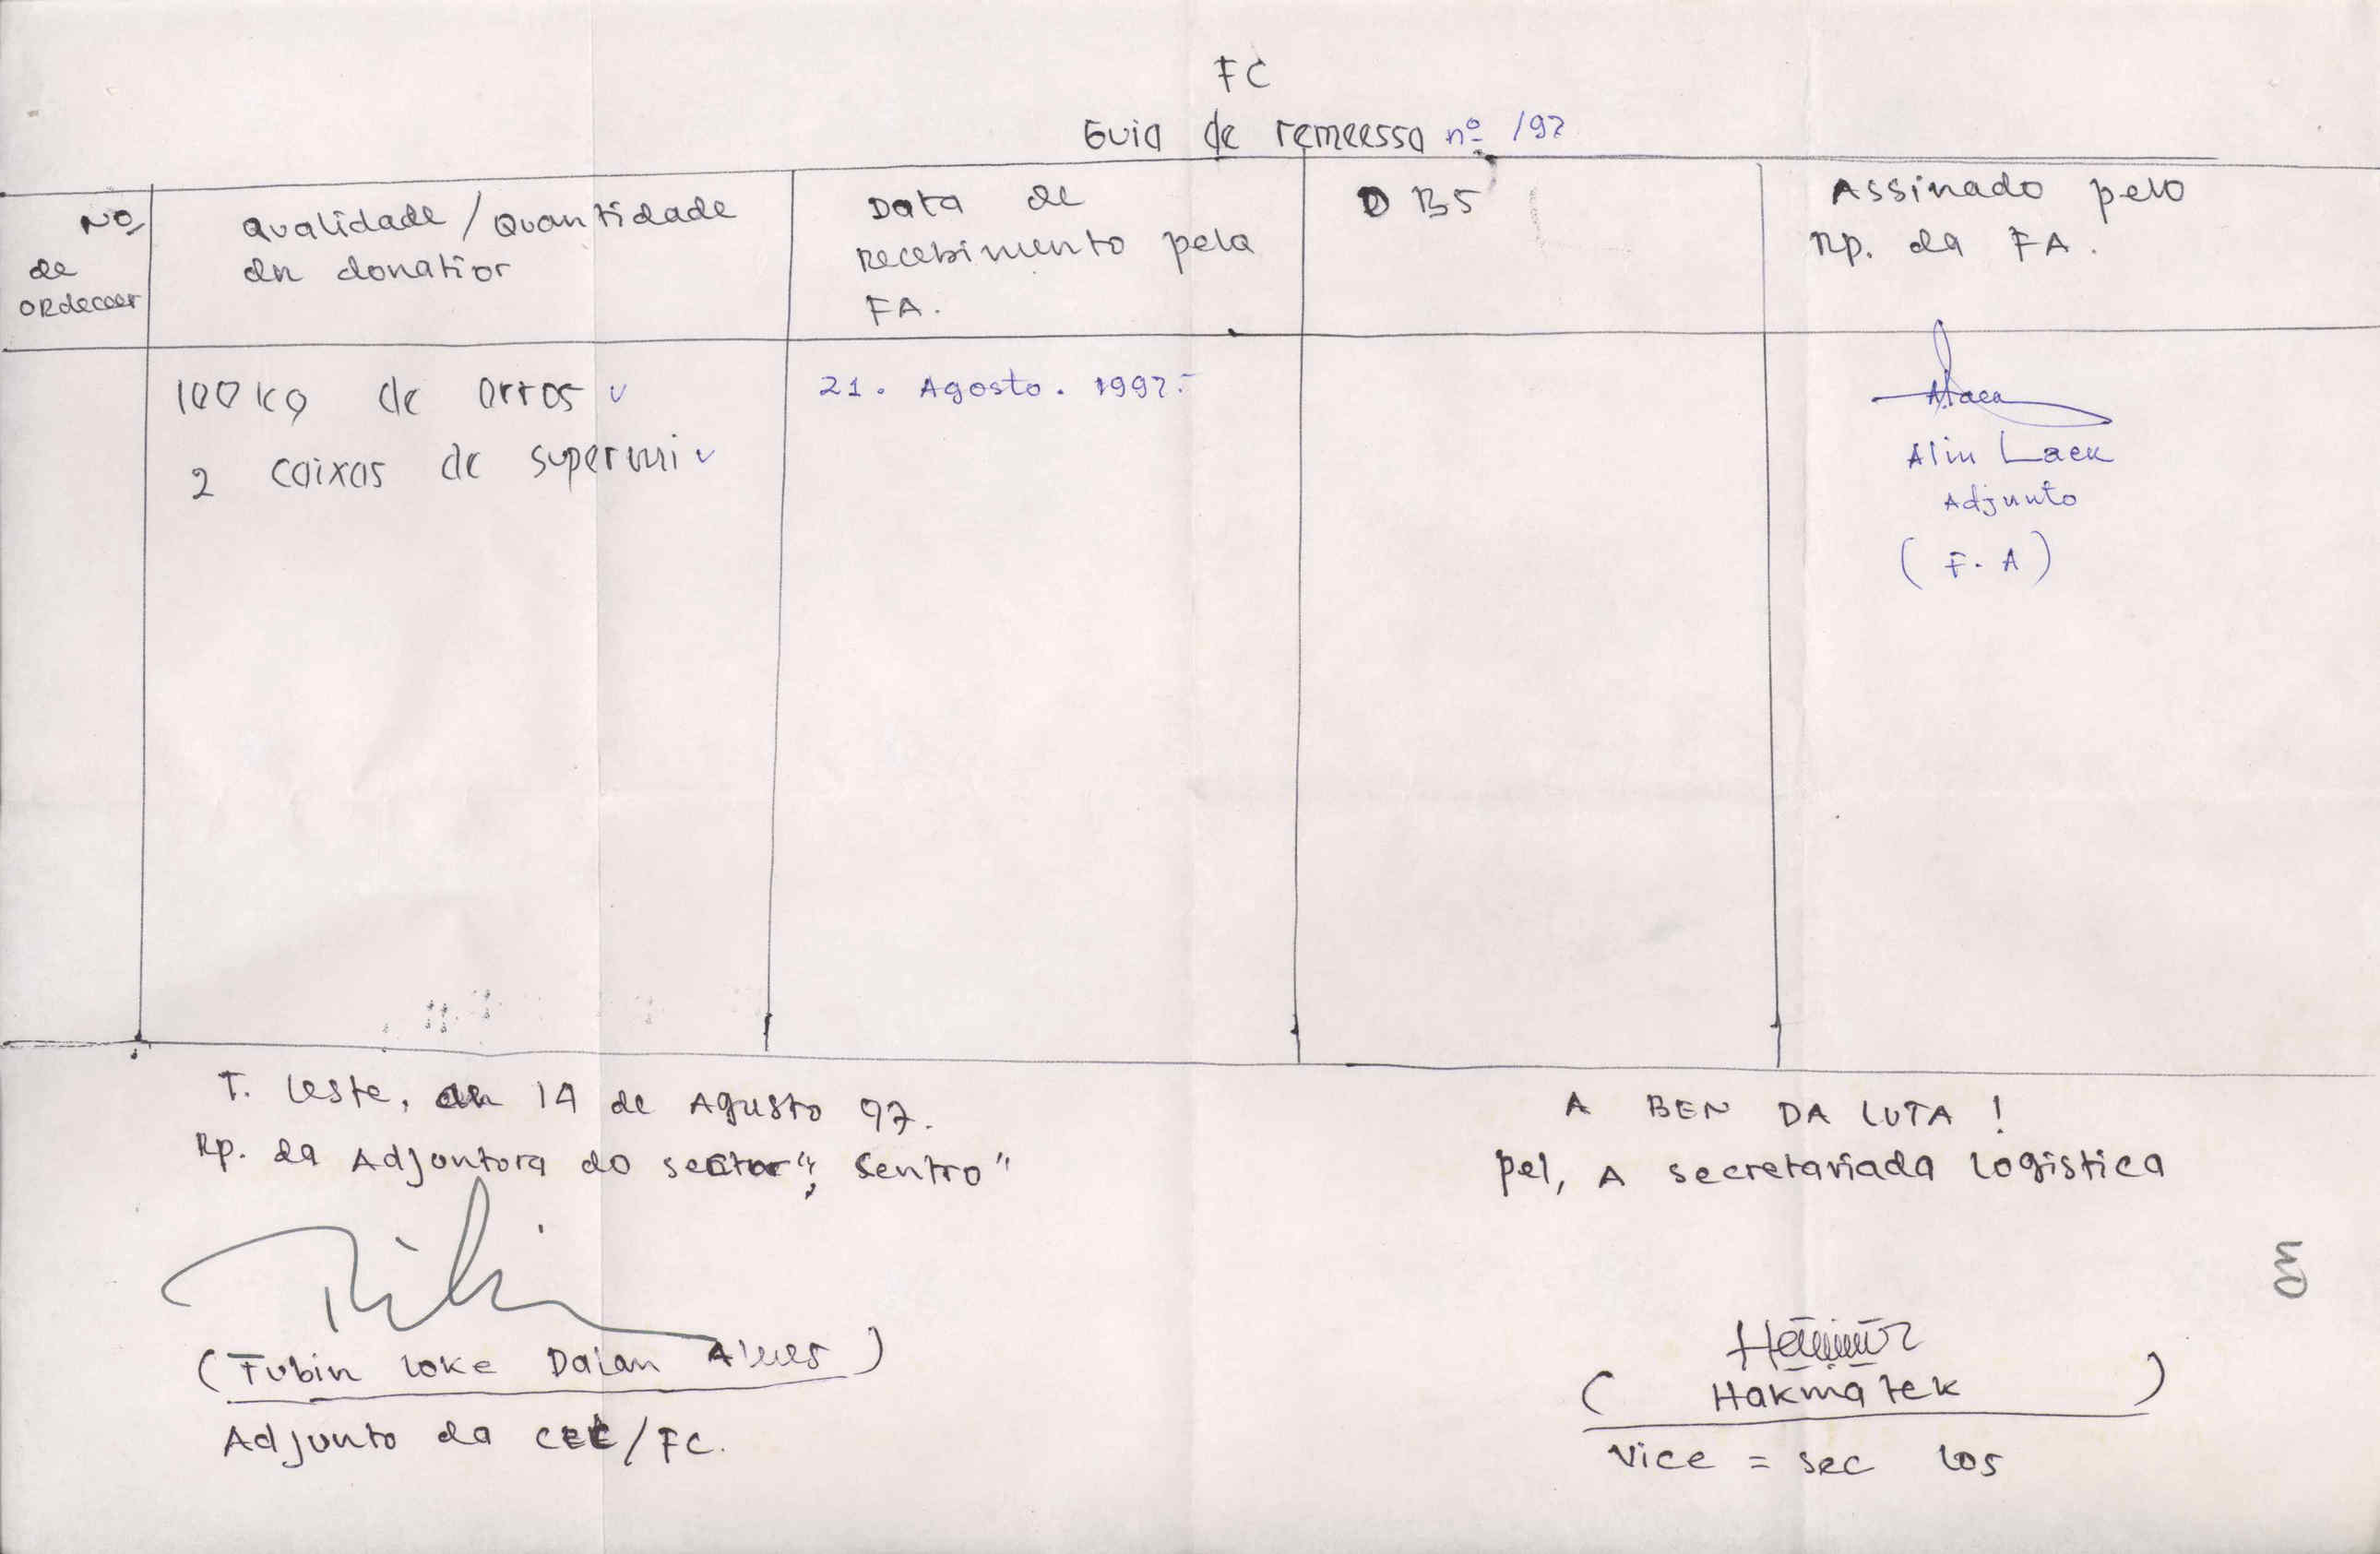 FC
Guia de remeessa nº /97
No,
de
ordeccer
Qualidade / Quantidade
dn donatior
Data de
recebimento pela
FA.
O B5
Assinado pelo
Rp. da FA.
100 kg de arros v
2 caixas de supermi v
21. Agosto. 1997.-
Alin Laek
Adjunto
( F. A )
T. Leste, 14 de Agusto 97.
Rp. da Adjontora do sector "; Sentro"
( Fubin Loke Daian Alves )
Adjunto da CEC/FC.
A BEN DA LUTA !
pel, A secretariada Logistica
( Hakmatek )
Vice = sec Los